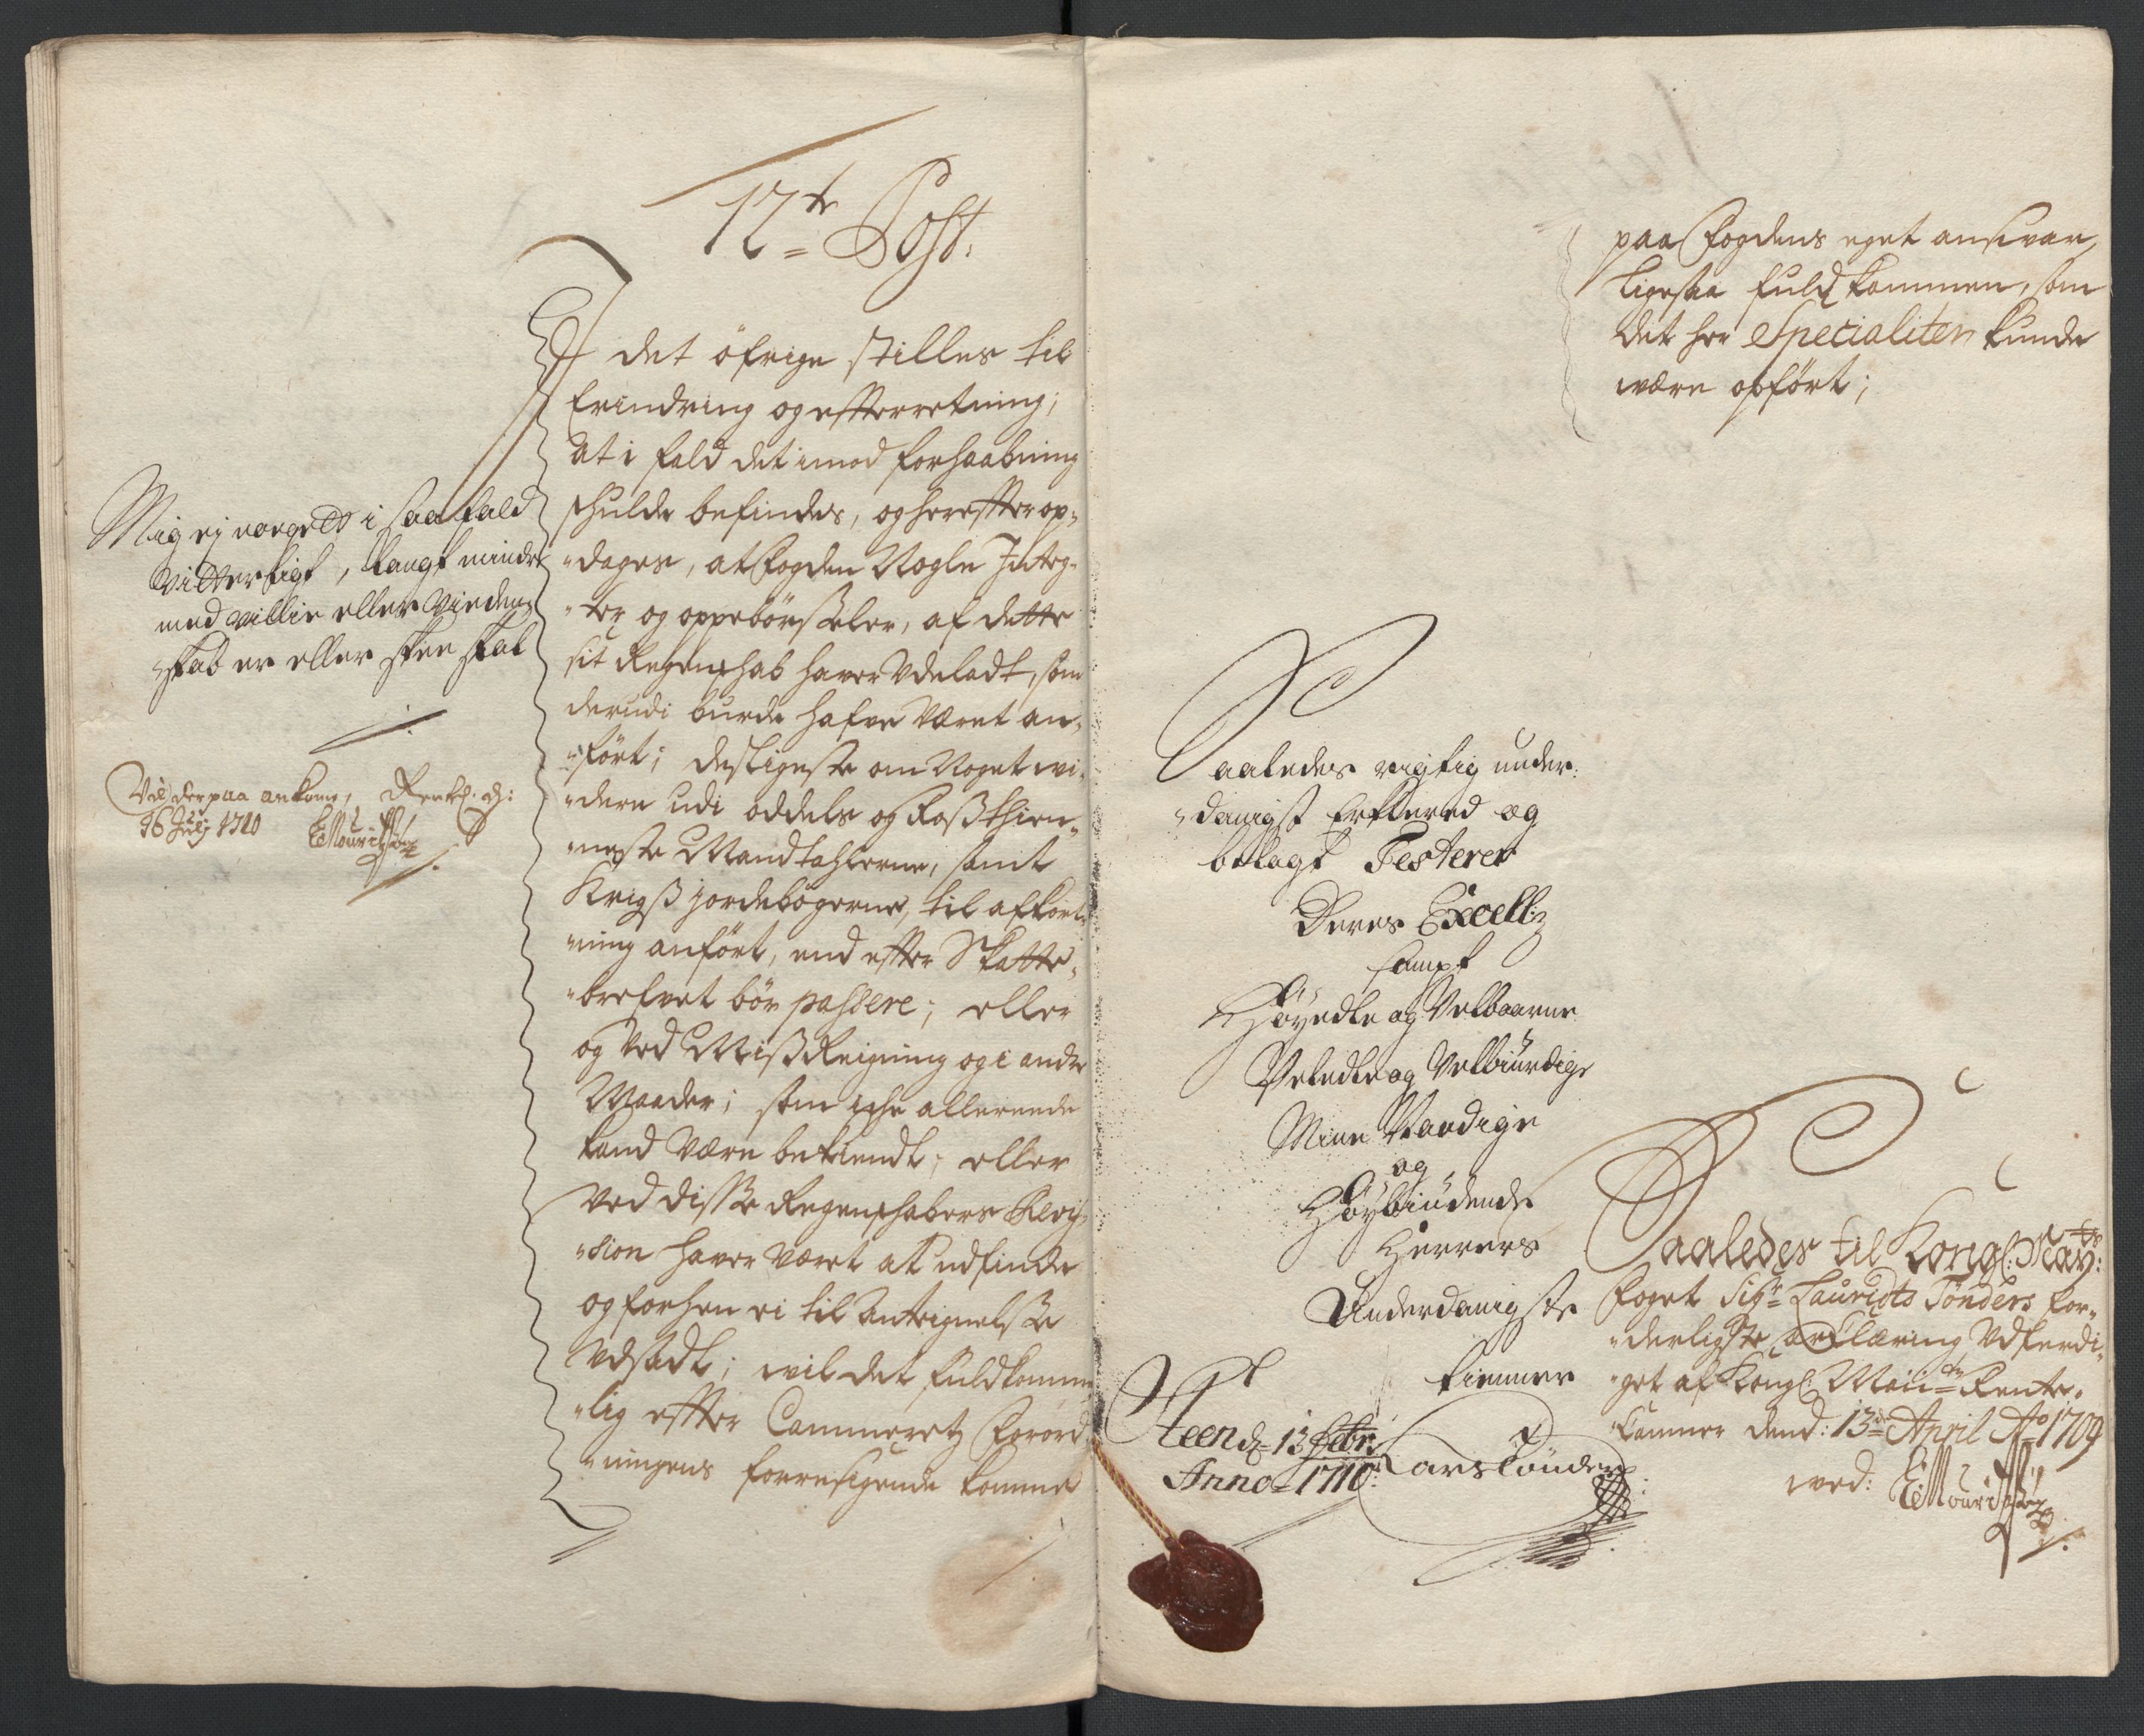 12te Post.
I det öfrige stilles til
Erindring og efterretning;
At i fald det imod forhaabning
skulde befindes, og herefter op-
dages, at Fogden Nogle Integ-
ter og oppebörseler, af dette
sit Regenskab haver Udeladt, som
derudi burde hafve Været an-
fört; desligeste om Noget wi-
dere udi oddels og Rosstien-
neste Mandtahlerne, samt
Krigs jordebögerne, til afkort-
ning anfört, end efter Skatte-
brefvet bör passere; eller
og Ved MissReigning og i andre
Maader; som icke allereede
kand Være bekiendt; eller
Ved disse Regenskabers Revi-
sion haver Været at udfinde
og forhen ei til Antegnelse
Udsadt; wil det fuldkomme-
lig efter Cammeretz Forord-
ningens foresigende komme
Mig ej noget i saa fald
vitterligt, langt mindre
med villie eller Viden-
skab er eller skee skal
Vil derpaa ankomme, Rentk:
16 Julij 1710
paa Fogdens eget answar,
ligesaa fuldkommen, som
det her Specialiter kunde
være opfört;
Saaledes rigtig under-
danigst Erklered og
belagt Testerer
Deres Excell:
sampt
Höyedle og Velbaarne
Veledle og Velbiurdige
Mine Naadige
og
Höybiudende
Herrers
Underdanigste
tienner
Steen d. 13 Febr:
Anno 1710.
Lars Tönder
Saaledes til Kongl: May:ts
Foget Sigr. Lauridts Tönders for-
derligste erClæring Udferdi-
get af Kongl: Maii:ts Rente-
Cammer dend: 13de April Ao 1709
ved: